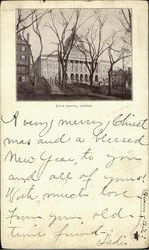 STATE HOUSE, BOSTON.
A very merry Christ
mas and a blessed
New Year, to you
and all of yours.
With much love
from your old-
time friend,